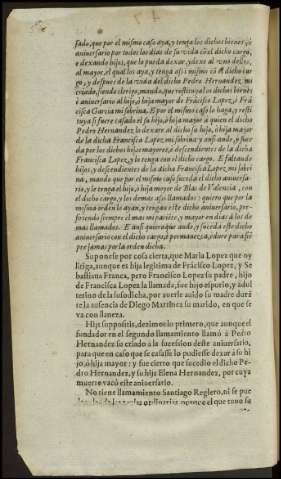 sado, que por el mismo caso aya, y tenga los dichos bienes, y
aniversario por todos los dias de su vida cõ el dicho cargo,
e dexando hijos, que lo pueda dexar, y dexe al uno dellos,
al mayor, el qual los aya, y tenga assi mismo cõ el dicho car
go, y despues de la vida del dicho Pedro Hernandez mi
criado, siendo clerigo, mando, que restituya los dichos bienes
y aniversario al hijo, o hija mayor de Frãcisca Lopez, y Frã
cisca Garcia mi sobrina. E por el mismo caso lo haga, y resti
tuya si fuere casado el su hijo, o hija mayor a quien el dicho
Pedro Hernandez lo dexare al dicho su hijo, o hija mayor
de la dicha Francisca Lopez mi sobrina: y assi ande, y suce
da por los dichos hijos mayores, e descendientes de la dicha
Francisca Lopez, y lo tenga con el dicho cargo. E faltando
hijos, y descendientes de la dicha Francisca Lopez mi sobri
na, mando que por el mismo caso suceda el dicho aniversa-
rio, y le tenga el hijo, o hija mayor de Blas de Valencia, con
el dicho cargo, y los demas assi llamados: quiero que por la
misma orden lo ayan, y tengan este dicho aniversario, pre-
firiendo siempre el mas pariente, y mayor en dias à los de
mas llamados. E assi quiero que ande, y suceda este dicho
aniversario con el dicho cargo, e permanezca, e dure para siẽ
pre jamas por la orden dicha.
Supone se por cosa cierta, que Maria Lopez que oy
litiga, aunque es hija legitima de Frãcisco Lopez, y Se
bastiana Franca, pero Francisco Lopez su padre, hijo
de Francisca Lopez la llamada, fue hijo espurio, y adul
terino de la susodicha, por averle avido su madre durã
te la ausencia de Diego Martinez su marido, en que se
va con llaneza.
His suppositis, dezimos lo primero, que aunque el
fundador en el segundo llamamiento llamó à Pedro
Hernandez su criado à la sucession deste aniversario,
para que en caso que se casasse lo pudiesse dexar a su hi
jo, ò hija mayor: y fue cierto que sucedio el dicho Pe-
dro Hernandez, y su hija Elena Hernandez, por cuya
muerte vacò este aniversario.
No tiene llamamiento Santiago Reglero, ni se pue